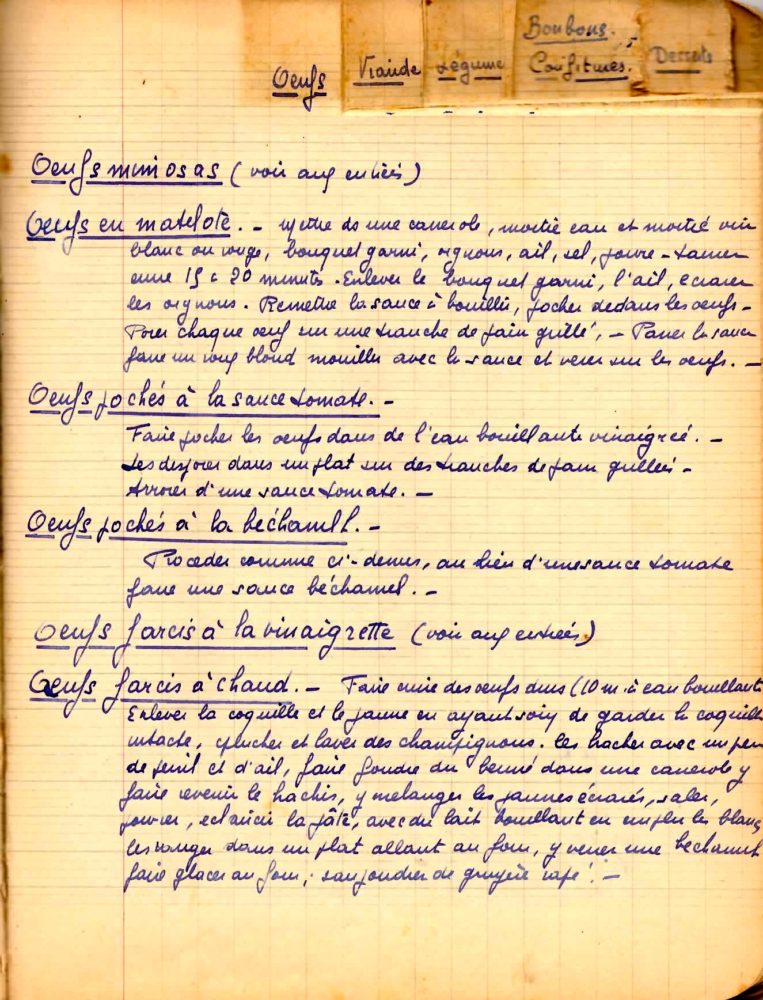 Bonbons.
Oeufs Viande Légume Confitures. Desserts
Oeufs mimosas (voir aux entrées)
Oeufs en matelote. - mettre ds une casserole, moitié eau et moitié vin
blanc ou rouge, bouquet garni, oignons, ail, sel, poivre -
cuire 15 à 20 minutes. Enlever le bouquet garni, l'ail, écraser
les oignons. Remettre la sauce à bouillir, pocher dedans les oeufs -
Poser chaque oeuf sur une tranche de pain grillé, - Passer la sauce
faire un roux blond mouiller avec la sauce et verser sur les oeufs. -
Oeufs pochés à la sauce tomate. -
Faire pocher les oeufs dans de l'eau bouillante vinaigrée. -
Les disposer dans un plat sur des tranches de pain grillées -
Arroser d'une sauce tomate. -
Oeufs pochés à la béchamel. -
Procéder comme ci-dessus, au lieu d'une sauce tomate
faire une sauce béchamel. -
Oeufs farcis à la vinaigrette (voir aux entrées)
Oeufs farcis à chaud. - Faire cuire des oeufs durs (10 m. à eau bouillante
Enlever la coquille et le jaune en ayant soin de garder la coquille
intacte, éplucher et laver des champignons. les hacher avec un peu
de persil et d'ail, faire fondre du beurre dans une casserole y
faire revenir le hachis, y mélanger les jaunes écrasés, saler,
poivrer, éclaircir la pâte, avec du lait bouillant en emplir les blancs
les ranger dans un plat allant au four, y verser une béchamel
faire glacer au four, saupoudrer de gruyère rapé. -